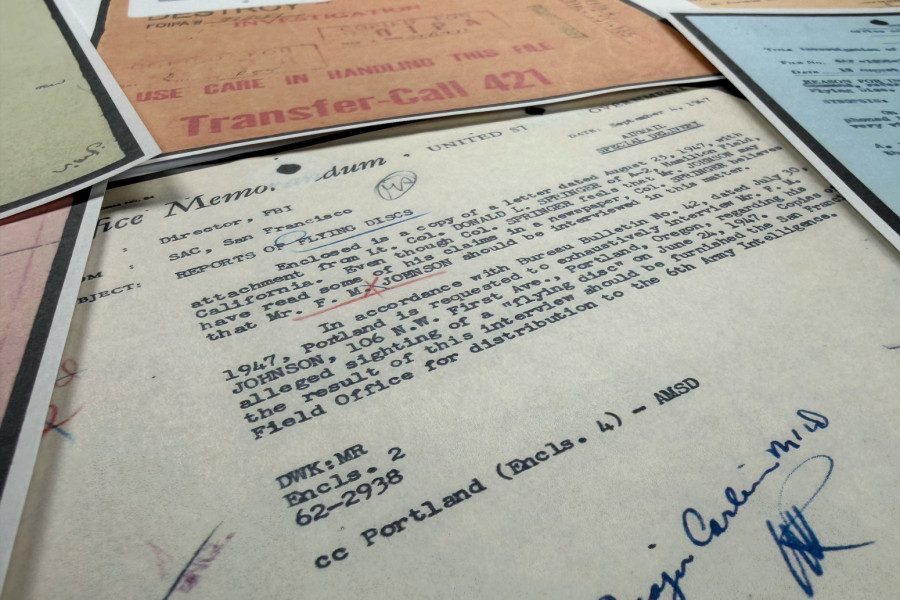 DESTROY
FOIPA#
INVESTIGATION
USE CARE IN HANDLING THIS FILE
Transfer-Call 421
fice Memo dum • UNITED ST
DATE:
AIRMAIL
SPECIAL DELIVERY
: Director, FBI
OM : SAC, San Francisco
BJECT: REPORTS OF FLYING DISCS
Enclosed is a copy of a letter dated August 25, 1947, with
attachment from Lt. Col. DONALD L. SPRINGER, A-2, Hamilton Field,
California. Even though Col. SPRINGER feels that Mr. JOHNSON may
have read some of his claims in a newspaper Col. SPRINGER believes
that Mr. F. M. JOHNSON should be interviewed in this matter.
In accordance with Bureau Bulletin No. 42, dated July 30,
1947, Portland is requested to exhaustively interview Mr. F. M.
JOHNSON, 106 N.W. First Ave., Portland, Oregon, regarding his
alleged sighting of a "flying disc" on June 24, 1947. Copies of
the result of this interview should be furnished the San Francisco
Field Office for distribution to the 6th Army Intelligence.
DWK:MR
Encls. 2
62-2938
cc Portland (Encls. 4) - AMSD